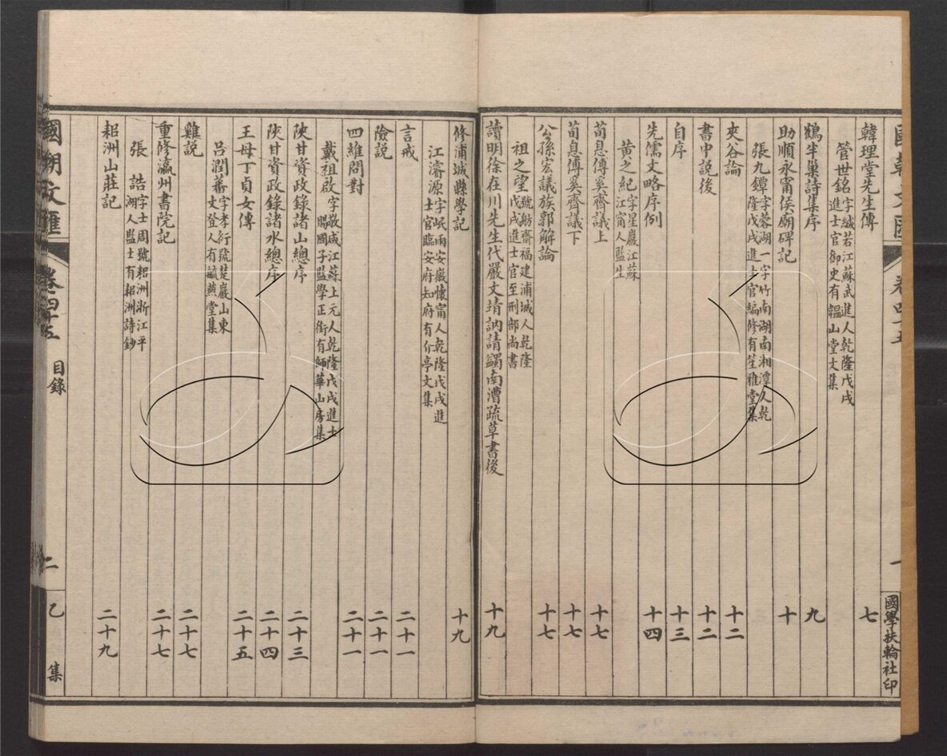 韓理堂先生傳 七
管世銘 字緘若江蘇武進人乾隆戊戌進士官御史有韞山堂文集
鶴半巢詩集序 九
助順永甯侯廟碑記 十
張九鐔 字蓉湖一字竹南湖南湘潭人乾隆戊戌進士官編修有笙雅堂集
夾谷論 十二
書中說後 十二
自序 十三
先儒文略序例 十四
黄之紀 字星巖江蘇江甯人監生
荀息傅奚齊議上 十七
荀息傅奚齊議下 十七
公孫宏議族郭解論 十七
祖之望 號舫齋福建浦城人乾隆戊戌進士官至刑部尚書
讀明徐在川先生代嚴文靖訥請蠲南漕疏草書後 十九
國學扶輪社印
修浦城縣學記 十九
江濬源 字岷雨安徽懷甯人乾隆戊戌進士官臨安府知府有介亭文集
言戒 二十一
險說 二十一
四維問對 二十一
戴祖啟 字敬咸江蘇上元人乾隆戊戌進士賜國子監學正銜有師華山房集
陜甘資政錄諸山總序 二十三
陜甘資政錄諸水總序 二十四
王母丁貞女傳 二十五
呂潤蕃 字孝衍號雙巖山東文登人有
雞說 二十七
重修瀛州書院記 二十七
張誥 字士周號耜洲浙江平湖人監生有耜洲詩鈔
耜洲山莊記 二十九
國朝文匯 卷四十五 目錄 二 乙集